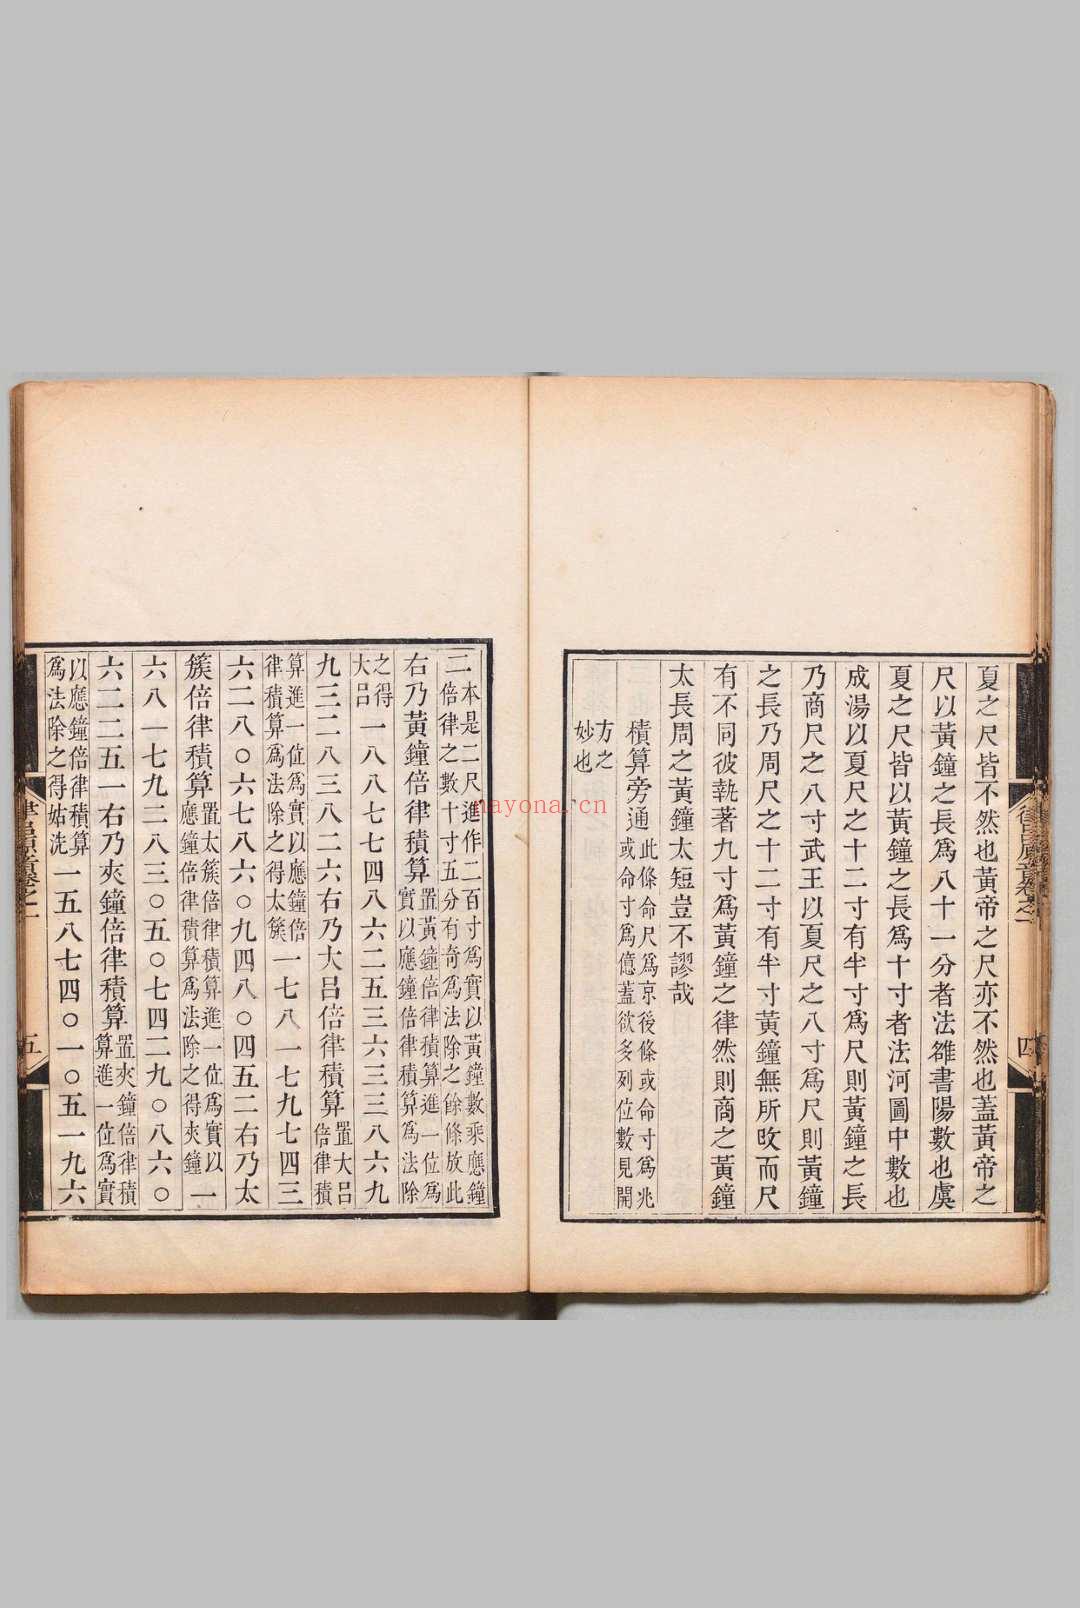 夏之尺皆不然也黃帝之尺亦不然也蓋黃帝之
尺以黃鐘之長爲八十一分者法雒書陽數也虞
夏之尺皆以黃鐘之長爲十寸者法河圖中數也
成湯以夏尺之十二寸有半寸爲尺則黃鐘之長
乃商尺之八寸武王以夏尺之八寸爲尺則黃鐘
之長乃周尺之十二寸有半寸黃鐘無所攺而尺
有不同彼執著九寸爲黃鐘之律然則商之黃鐘
太長周之黃鐘太短豈不謬哉
積算旁通此條命尺爲京後條或命寸爲兆
或命寸爲億蓋欲多列位數見開
方之
妙也
律呂原音卷之一
四
二本是二尺進作二百寸爲實以黃鐘數乘應鐘
倍律之數十寸五分有奇爲法除之餘條放此
右乃黃鐘倍律積算置黃鐘倍律積算進一位爲
實以應鐘倍律積算爲法除
之得
大呂一八八七七四八六二五三六三三八六九
九三二八三八二六右乃大呂倍律積算置大呂
倍律積
算進一位爲實以應鐘倍
律積算爲法除之得太簇一七八一七九七四三
六二八〇六七八六〇九四八〇四五二右乃太
簇倍律積算置太簇倍律積算進一位爲實以
應鐘倍律積算爲法除之得夾鐘一
六八一七九二八三〇五〇七四二九〇八六〇
六二二五一右乃夾鐘倍律積算置夾鐘倍律積
算進一位爲實
以應鐘倍律積算
爲法除之得姑洗一五八七四〇一〇五一九六
五
nayona.cn